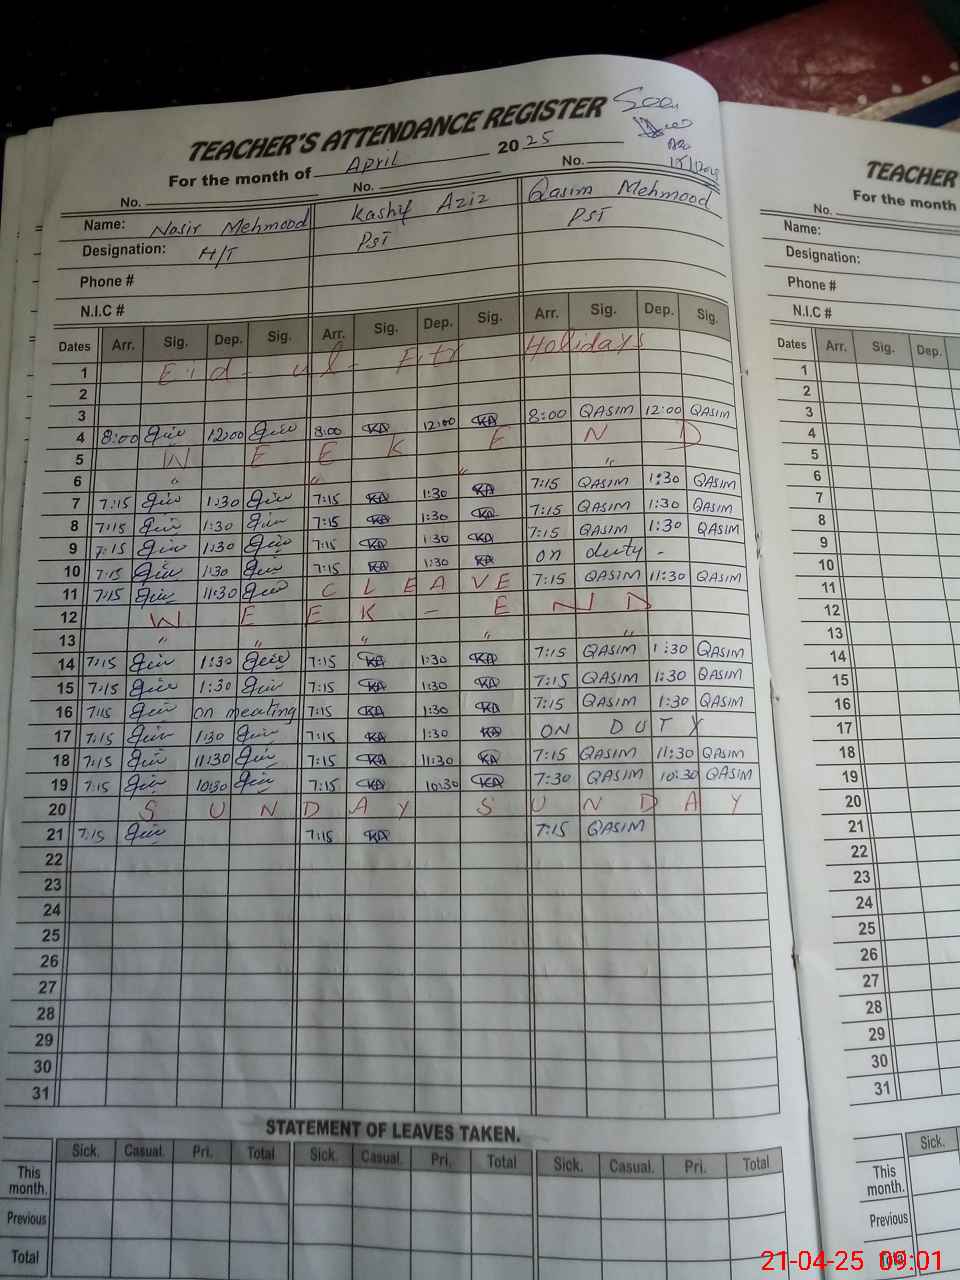 TEACHER'S ATTENDANCE REGISTER Seen
For the month of April 2025
No. No. No.
Name: Nasir Mehmood Kashif Aziz Qasim Mehmood
Designation: H/T PST PST
Phone #
N.I.C #
Dates Arr. Sig. Dep. Sig. Arr. Sig. Dep. Sig. Arr. Sig. Dep. Sig.
1 Eid-ul-Fitr Holidays
2
3
4 8:00 12:00 8:00 KA 12:00 KA 8:00 QASIM 12:00 QASIM
5 W E E K E N D
6 " " " "
7 7:15 1:30 7:15 KA 1:30 KA 7:15 QASIM 1:30 QASIM
8 7:15 1:30 7:15 KA 1:30 KA 7:15 QASIM 1:30 QASIM
9 7:15 1:30 7:15 KA 1:30 KA 7:15 QASIM 1:30 QASIM
10 7:15 1:30 7:15 KA 1:30 KA on duty -
11 7:15 11:30 C LEAVE 7:15 QASIM 11:30 QASIM
12 W E E K - E N D
13 " " " " "
14 7:15 1:30 7:15 KA 1:30 KA 7:15 QASIM 1:30 QASIM
15 7:15 1:30 7:15 KA 1:30 KA 7:15 QASIM 1:30 QASIM
16 7:15 on meating 7:15 KA 1:30 KA 7:15 QASIM 1:30 QASIM
17 7:15 1:30 7:15 KA 1:30 KA ON DUTY
18 7:15 11:30 7:15 KA 11:30 KA 7:15 QASIM 11:30 QASIM
19 7:15 10:30 7:15 KA 10:30 KA 7:30 QASIM 10:30 QASIM
20 S U N D A Y S U N D A Y
21 7:15 7:15 KA 7:15 QASIM
22
23
24
25
26
27
28
29
30
31
STATEMENT OF LEAVES TAKEN.
Sick. Casual. Pri. Total Sick. Casual. Pri. Total Sick. Casual. Pri. Total
This month.
Previous
Total
TEACHER
For the month
No.
Name:
Designation:
Phone #
N.I.C #
Dates Arr. Sig. Dep.
1
2
3
4
5
6
7
8
9
10
11
12
13
14
15
16
17
18
19
20
21
22
23
24
25
26
27
28
29
30
31
Sick.
This month.
Previous
Total
21-04-25 09:01